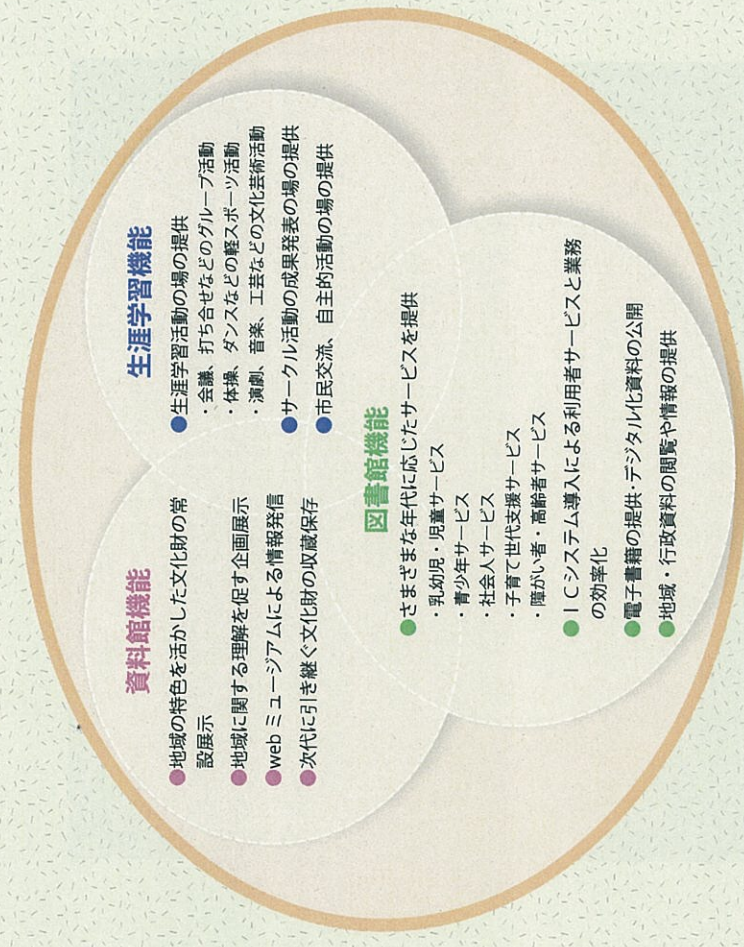 資料館機能
●地域の特色を活かした文化財の常
設展示
●地域に関する理解を促す企画展示
●webミュージアムによる情報発信
●次代に引き継ぐ文化財の収蔵保存
生涯学習機能
●生涯学習活動の場の提供
・会議、打ち合せなどのグループ活動
・体操、ダンスなどの軽スポーツ活動
・演劇、音楽、工芸などの文化芸術活動
●サークル活動の成果発表の場の提供
●市民交流、自主的活動の場の提供
図書館機能
●さまざまな年代に応じたサービスを提供
・乳幼児・児童サービス
・青少年サービス
・社会人サービス
・子育て世代支援サービス
・障がい者・高齢者サービス
●ICシステム導入による利用者サービスと業務
の効率化
●電子書籍の提供・デジタル化資料の公開
●地域・行政資料の閲覧や情報の提供